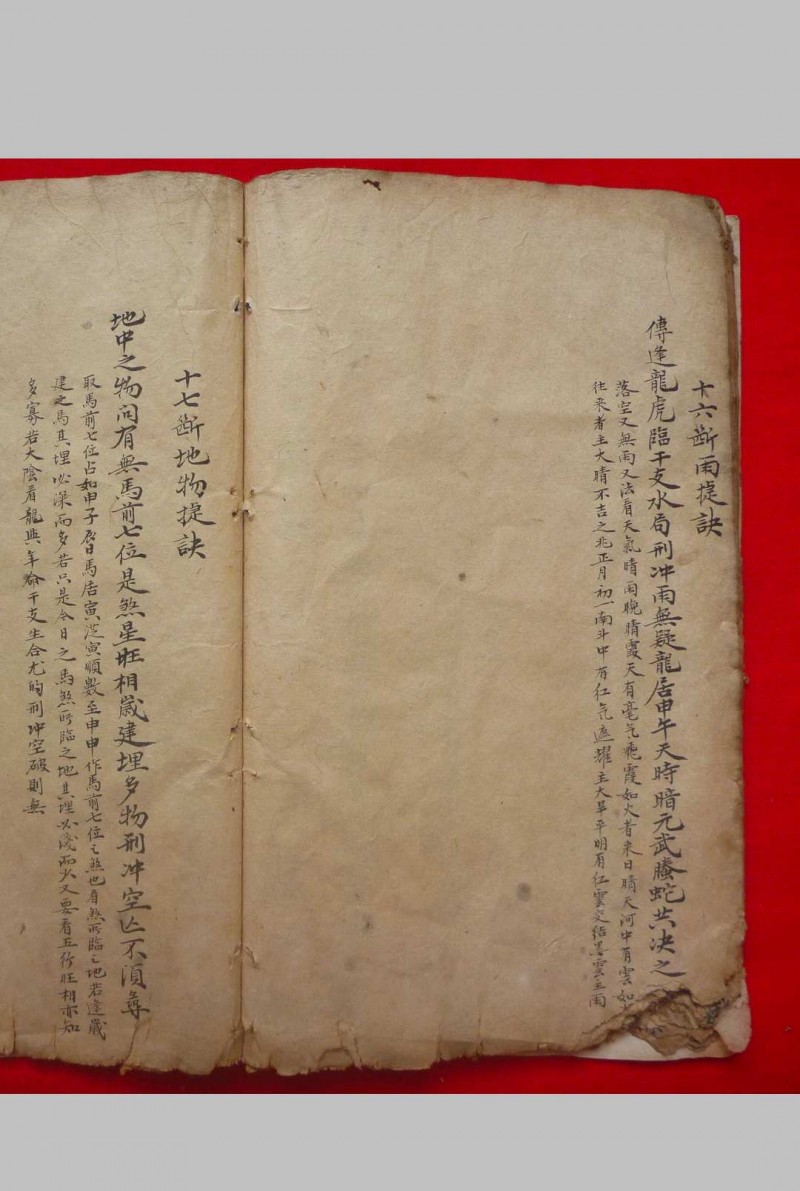 十六断雨捷訣
傳逢龍虎臨干支水局刑冲雨無疑龍居申午天時暗元武螣蛇共决之
落空又無雨又法看天氣晴雨晚晴霞天有毫气飛霞如火者来日晴天河中有雲如
往来者主大晴不吉之兆正月初一南斗中有红气遮耀主大旱平明有红雲交结黑雲主雨
十七断地物捷訣
地中之物问有無馬前七位是煞星旺相歲建埋多物刑冲空亡不須尋
取馬前七位占如申子辰日馬居寅從寅順數至申申作馬前七位之煞也看煞所臨之地若逢歲
建之馬其埋必深而多若只是今日之馬煞所臨之地其埋必淺而少又要看五行旺相亦知
多寡若大陰看龍與年命干支生合尤的刑冲空破則無